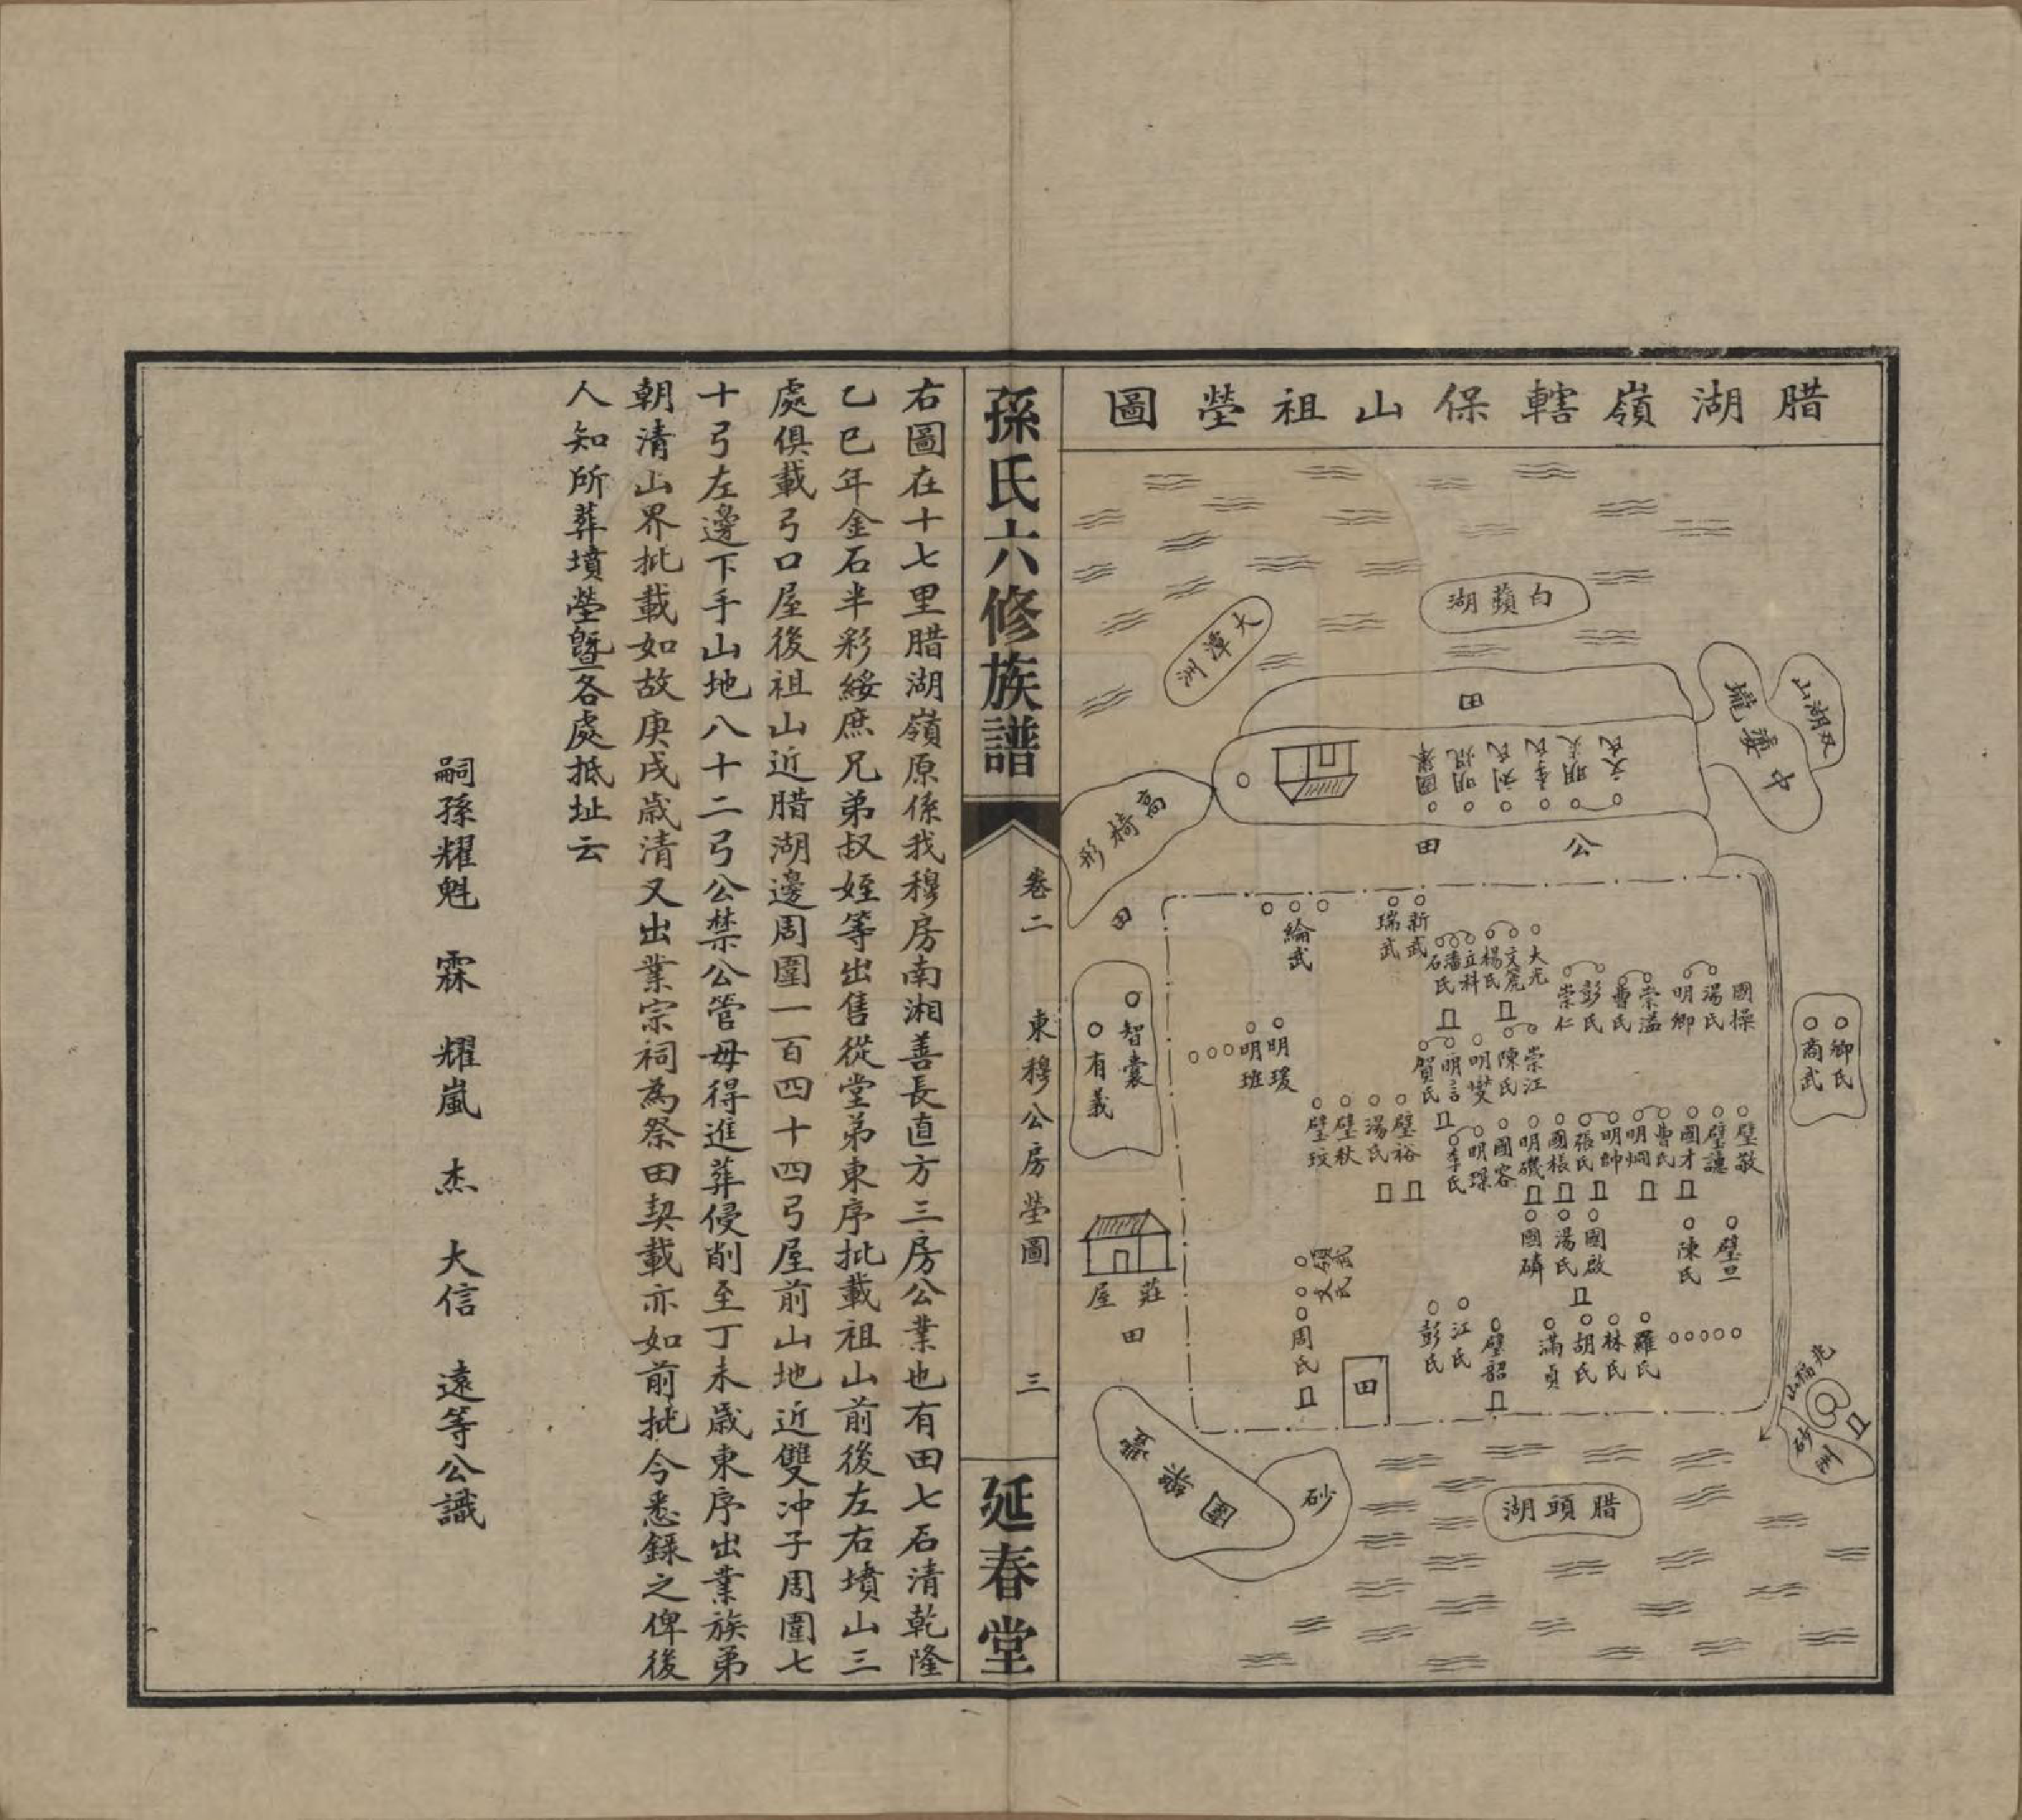 腊湖嶺轄保山祖塋圖
白蘋湖
大潭洲
田
双湖山
中 塘
國
明
刘氏
李氏
明
文氏
公田
高椅形
田
綸武
瑞武
新武
石氏
潘氏
立科
楊氏
文虎
大光
崇仁
彭氏
曹氏
崇溢
明卿
湯氏
國操
卿氏
商武
智囊
有義
明班
明瑗
賀氏
明言
明燮
陳氏
崇江
璧玟
璧秋
湯氏
璧裕
李氏
明璨
國容
明磯
國楱
張氏
明帥
明烱
曹氏
國才
璧譓
璧敬
國磷
湯氏
國啟
陳氏
璧旦
莊屋
田
周氏
彭氏
江氏
璧韶
滿貞
胡氏
林氏
羅氏
田
光福山
砂
洲
砂
腊頭湖
孫氏六修族譜
卷二
東穆公房塋圖
三
延春堂
右圖在十七里腊湖嶺原係我穆房南湘善長直方三房公業也有田七石清乾隆
乙巳年金石半彩綏庶兄弟叔姪等出售從堂弟東序批載祖山前後左右墳山三
處俱載弓口屋後祖山近腊湖邊周圍一百四十四弓屋前山地近雙冲子周圍七
十弓左邊下手山地八十二弓公禁公管毋得進葬侵削至丁未歲東序出業族弟
朝清山界批載如故庚戌歲清又出業宗祠為祭田契載亦如前批今悉録之俾後
人知所葬墳塋暨各處抵址云
嗣孫耀魁 霖 耀嵐 杰 大信 遠等公識